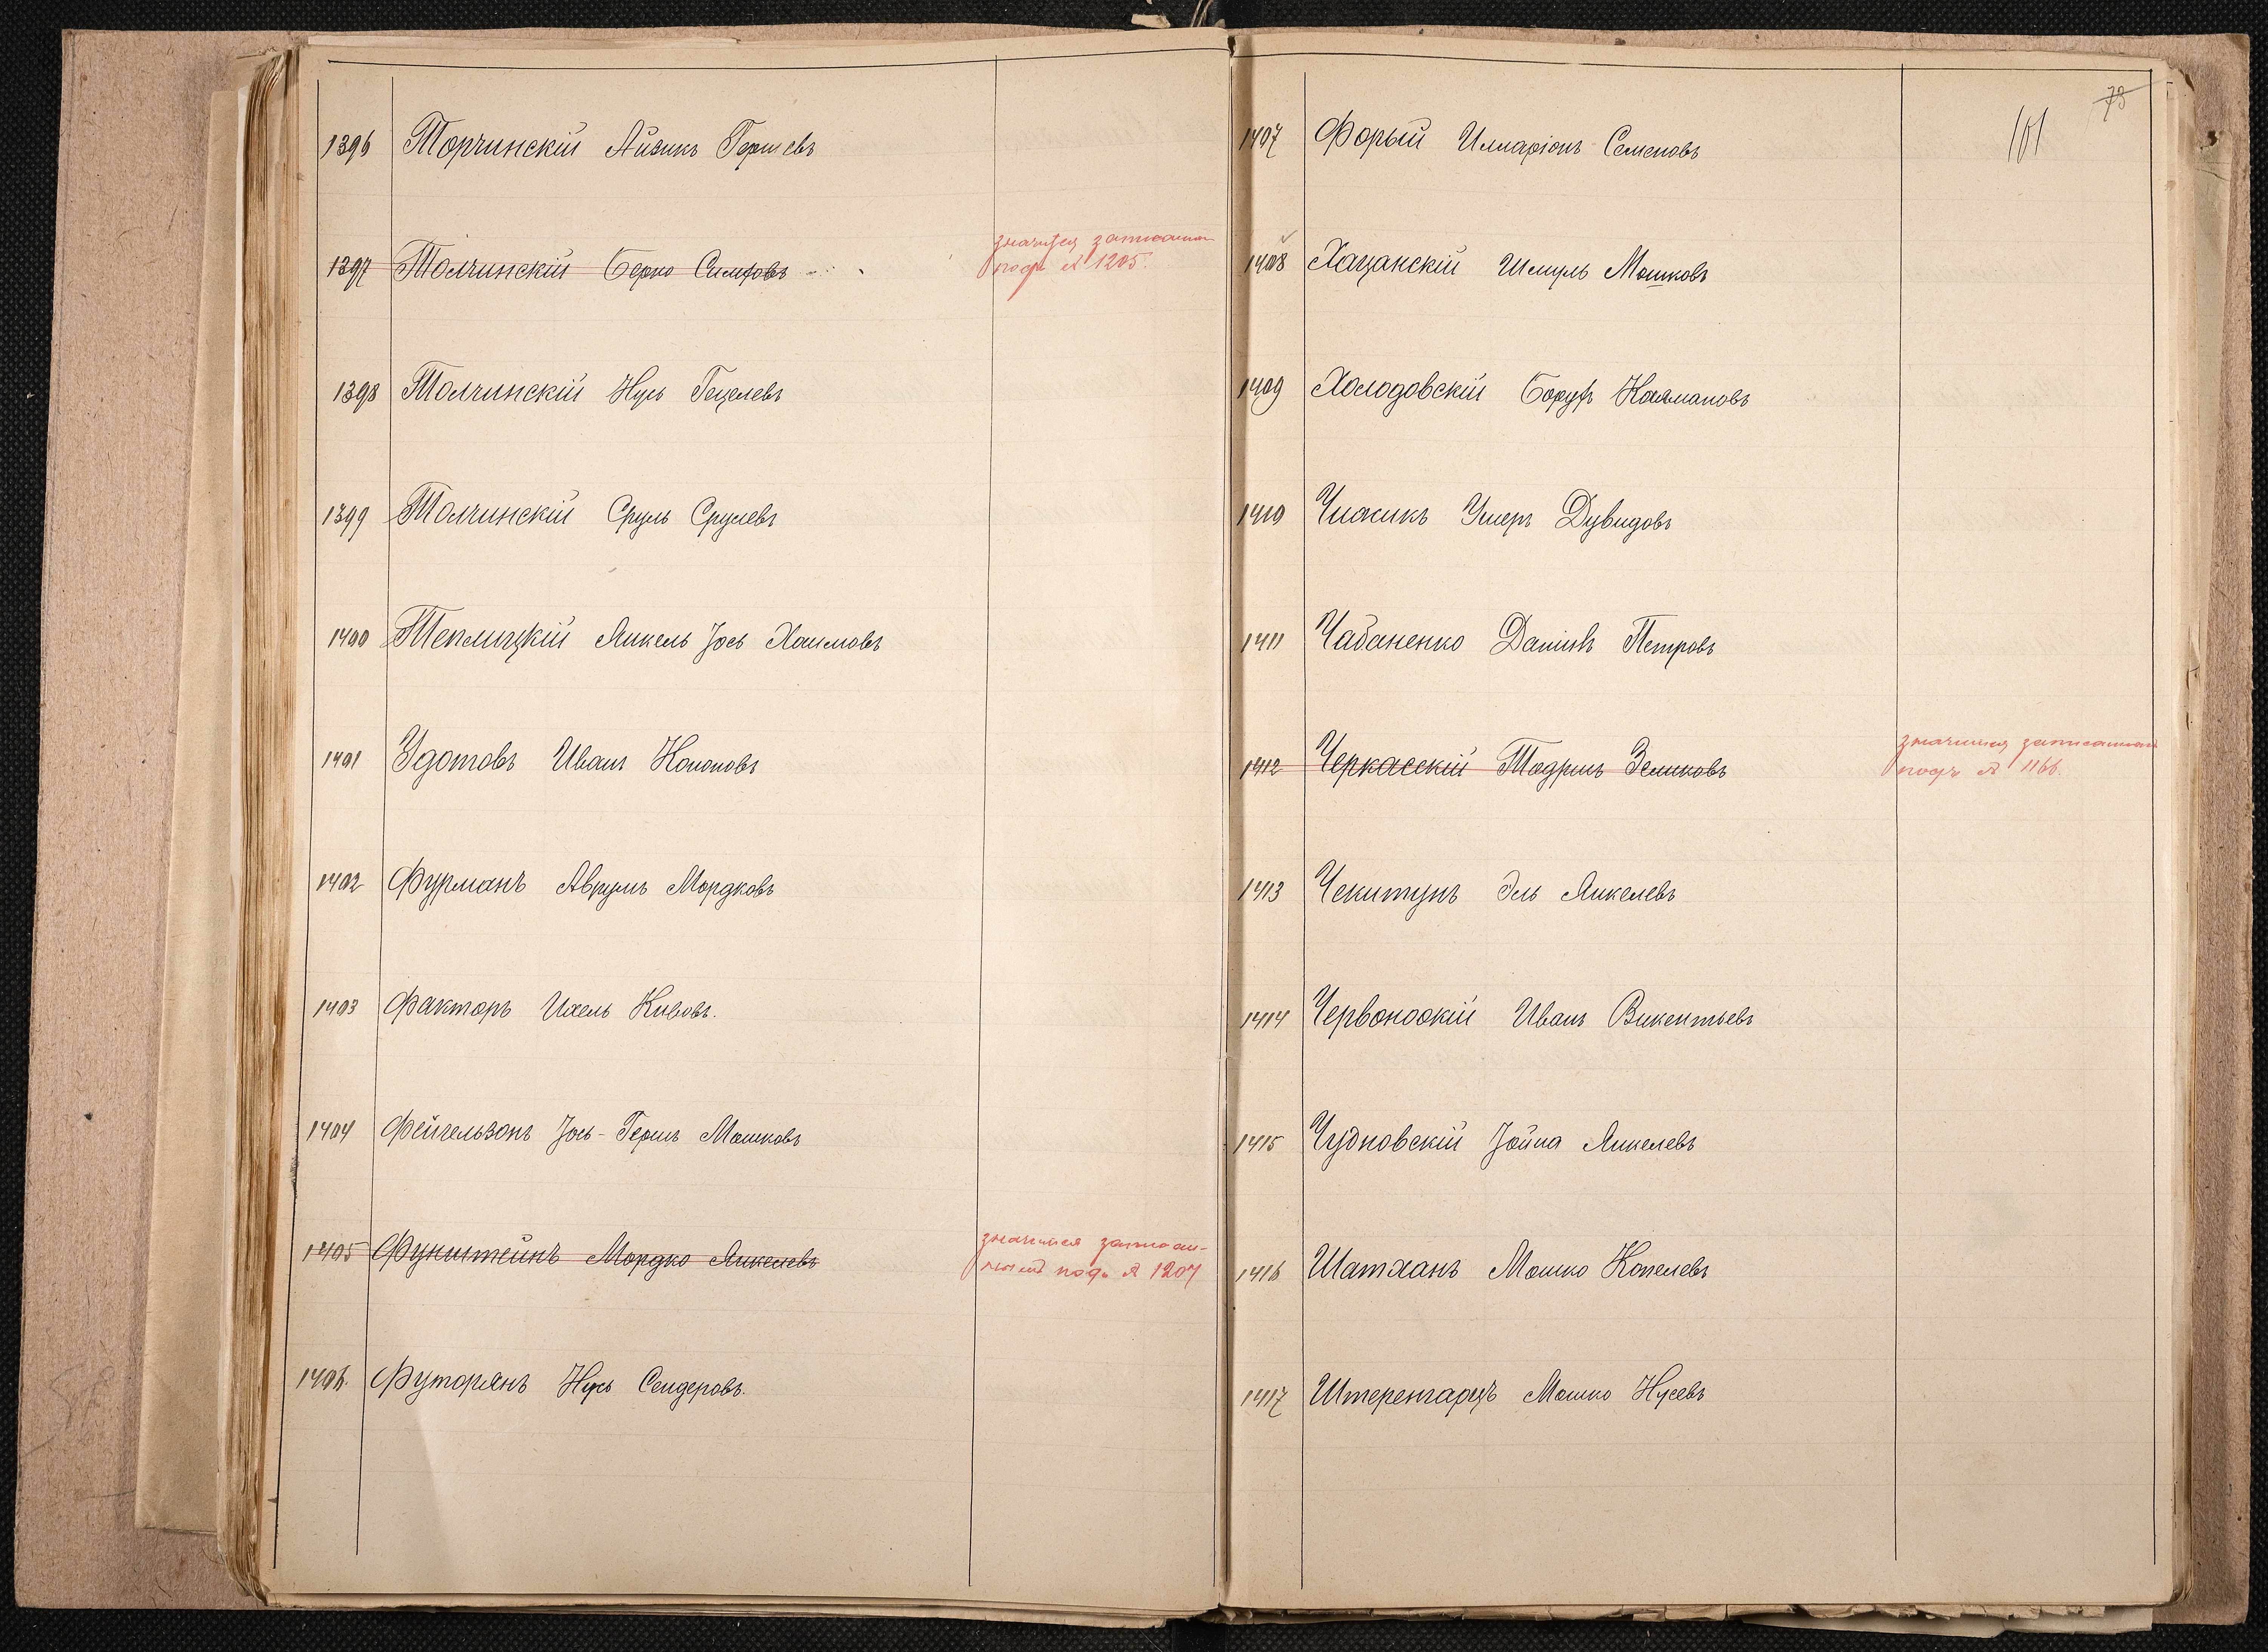 1396 Торчинскій Айзикъ Гершевъ
1397 Толчинскій Берко Симховъ
значится записанным
подъ № 1205.
1398 Толчинскій Нусь Гецелевъ
1399 Толчинскій Сруль Срулевъ
1400 Теплицкій Янкель Іось Хаимовъ
1401 Удотовъ Иванъ Кононовъ
1402 Фурманъ Аврумъ Мордковъ
1403 Факторъ Ихель Кивовъ.
1404 Фейгельзонъ Іось-Гершъ Мошковъ
1405 Функштейнъ Мордко Янкелевъ
значится записан-
нымъ подъ № 1207
1406. Футорянъ Нусь Сендеровъ.
73
101
1407 Форый Илларіонъ Семеновъ
1408 Хацанскій Шмуль Мошковъ
1409 Холодовскій Борухъ Калмановъ
1410 Чиасикъ Ушеръ Дувидовъ
1411 Чабаненко Даніилъ Петровъ
1412 Черкасскій Тодрисъ Зеликовъ
значится записаннымъ
подъ № 1166.
1413 Чекитунъ Эль Янкелевъ
1414 Червонскій Иванъ Викентьевъ
1415 Чудновскій Іойна Янкелевъ
1416 Шатханъ Мошко Копелевъ
1417 Штеренгарцъ Мошко Нусевъ